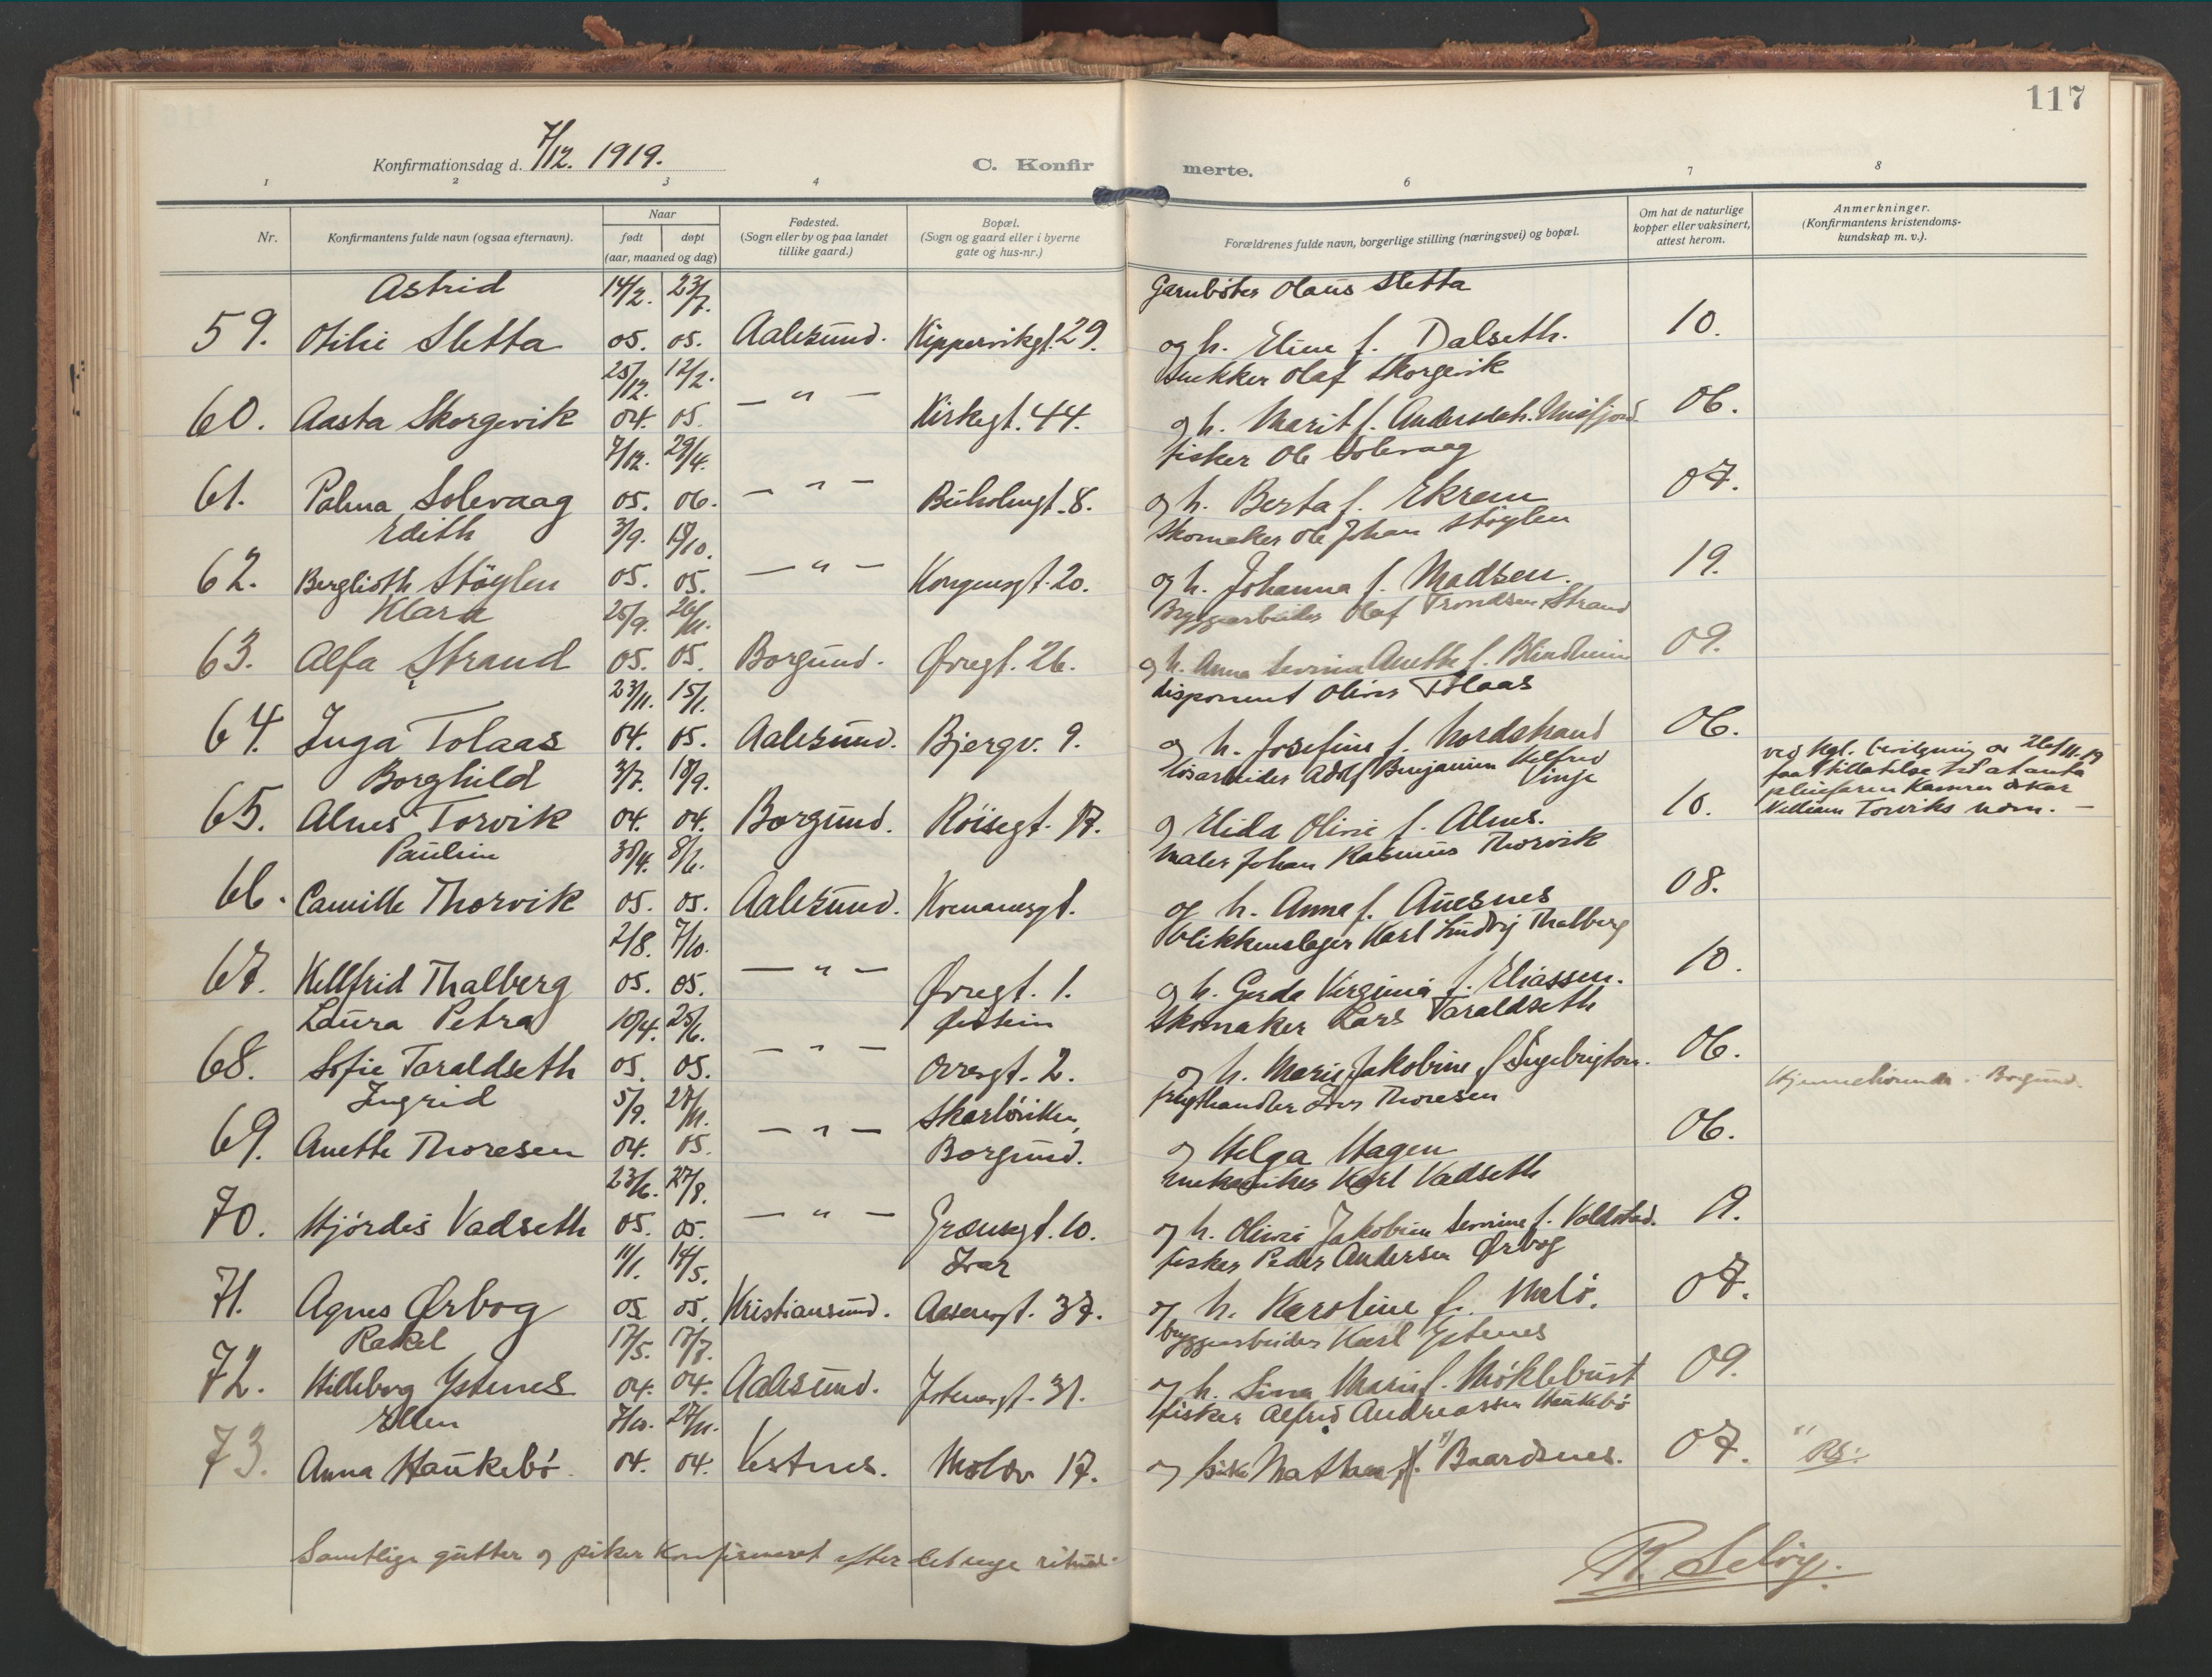 117
Konfirmationsdag d. 7/12. 1919.
C. Konfir merte.
1 2 3 4 5 6 7 8
Nr.
Konfirmantens fulde navn (ogsaa efternavn).
Naar
født døpt
(aar, maaned og dag)
Fødested.
(Sogn eller by og paa landet
tillike gaard.)
Bopæl.
(Sogn og gaard eller i byerne
gate og hus-nr.)
Forældrenes fulde navn, borgerlige stilling (næringsvei) og bopæl.
Om hat de naturlige
kopper eller vaksinert,
attest herom.
Anmerkninger.
(Konfirmantens kristendoms-
kundskap m. v.).
Astrid 14/2. 23/7. Garnbøter Olaus Sletta
59. Otilie Sletta 05. 05. Aalesund. Kippervikgt. 29. og h. Eline f. Dalseth. 10.
25/12. 12/2. Snekker Olaf Skorgevik
60. Aasta Skorgevik 04. 05. — " — Kirkegt. 44. og h. Marit f. Andersdtr. Misfjord. 06.
7/12. 29/4. fisker Ole Solevaag
61. Palma Solevaag 05. 06. — " — Buholmgt. 8. og h. Berta f. Ekrem 07.
Edith 3/9. 19/10. Skomaker Ole Johan Støylen
62. Berglioth Støylen 05. 05. — " — Kongensgt. 20. og h. Johanna f. Madsen. 19.
Klara 25/9. 26/11. Bryggearbeider Olaf Trondsen Strand
63. Alfa Strand 05. 05. Borgund. Øvregt. 26. og h. Anna Severina Anette f. Blindheim 09.
23/11. 15/1. disponent Oliver Tolaas
64. Inga Tolaas 04. 05. Aalesund. Bjergv. 9. og h. Josefine f. Nordstrand 06.
Borghild 3/7. 18/9. løsarbeider Adolf Benjamin Helfred Vinje
65. Alnes Torvik 04. 04. Borgund. Røisegt. 17. og Elida Olivie f. Alnes. 10.
ved kgl. bevilgning av 26/11-19
faat tilladelse til at anta
pleiefaren Rasmus Oskar
Villiam Torviks navn. —
Paulin 30/4. 8/6. maler Johan Rasmus Thorvik
66. Camille Thorvik 05. 05. Aalesund. og h. Anna f. Auesnes 08.
2/8. 7/10. blikkenslager Karl Ludvig Thalberg
67. Kellfrid Thalberg 05. 05. — " — Øvregt. 1. og h. Gerda Virginia f. Eliassen. 10.
Laura Petra 10/4. 25/6. Øistein Skomaker Lars Taraldseth
68. Sofie Taraldseth 05. 05. — " — Orresgt. 2. og h. Marie Jakobine f. Ingebrigtsen. 06.
Ingrid 5/9. 27/11. frugthandler Lars Thoresen
69. Anette Thoresen 04. 05. — " — Borgund. og Helga Hagen 06. Hjemmehørende i Borgund.
23/6. 27/8. mekaniker Karl Vadseth
70. Hjørdis Vadseth 05. 05. — " — Grænsegt. 10. og h. Olivie Jakobine Severine f. Voldstad. 19.
11/1. 14/5. Ivar fisker Peder Andersen Ørbog
71. Agnes Ørbog 05. 05. Kristiansund. Aasensgt. 37. og h. Karoline f. Malø. 07.
Rakel 17/5. 17/7. bryggearbeider Karl Ystenes
72. Hilleborg Ystenes 04. 04. Aalesund. Jotunsgt. 31. og h. Sina Marie f. Møklebust 09.
Ellen 7/10. 27/11. fisker Alfred Andreassen Haukebø
73. Anna Haukebø 04. 04. Vestnes. Molov 17. og pike Mathea Baardsnes. 07. RS:
Samtlige gutter og piker konfirmeret efter det nye ritual.
R. Selvig.